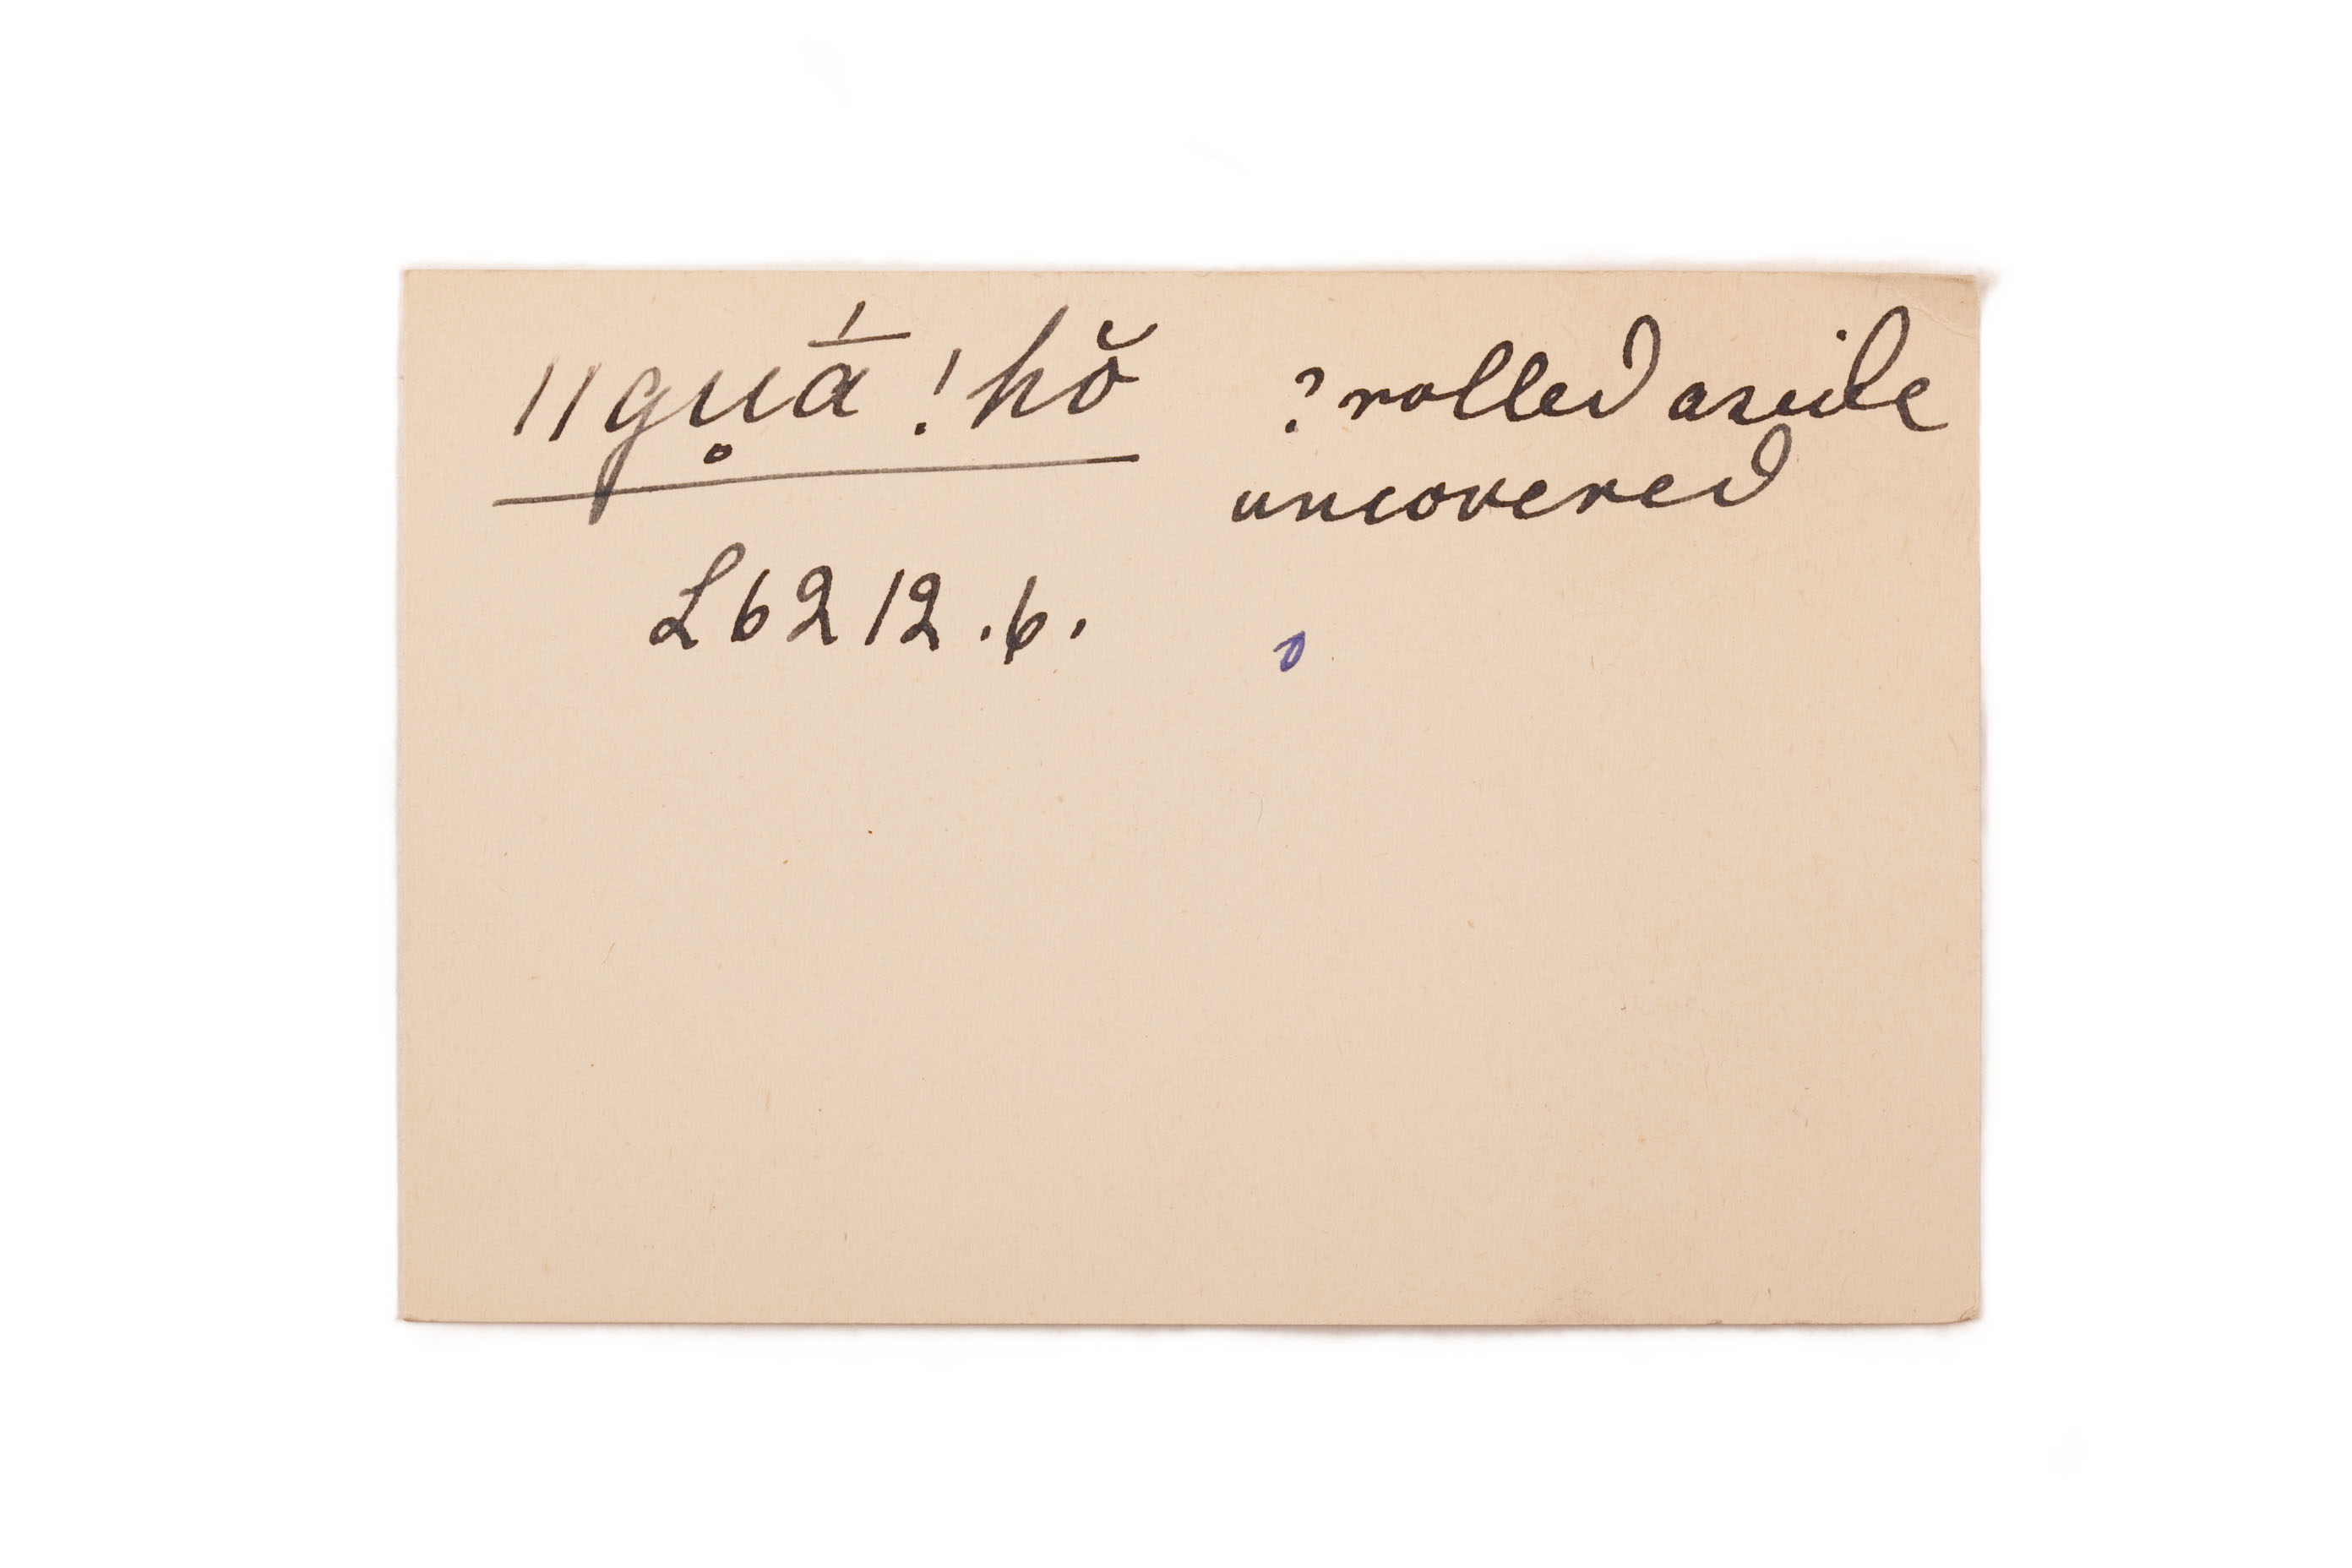 ǁgu̥ā́ !hŏ ? rolled aside
uncovered
L 62 12.6.